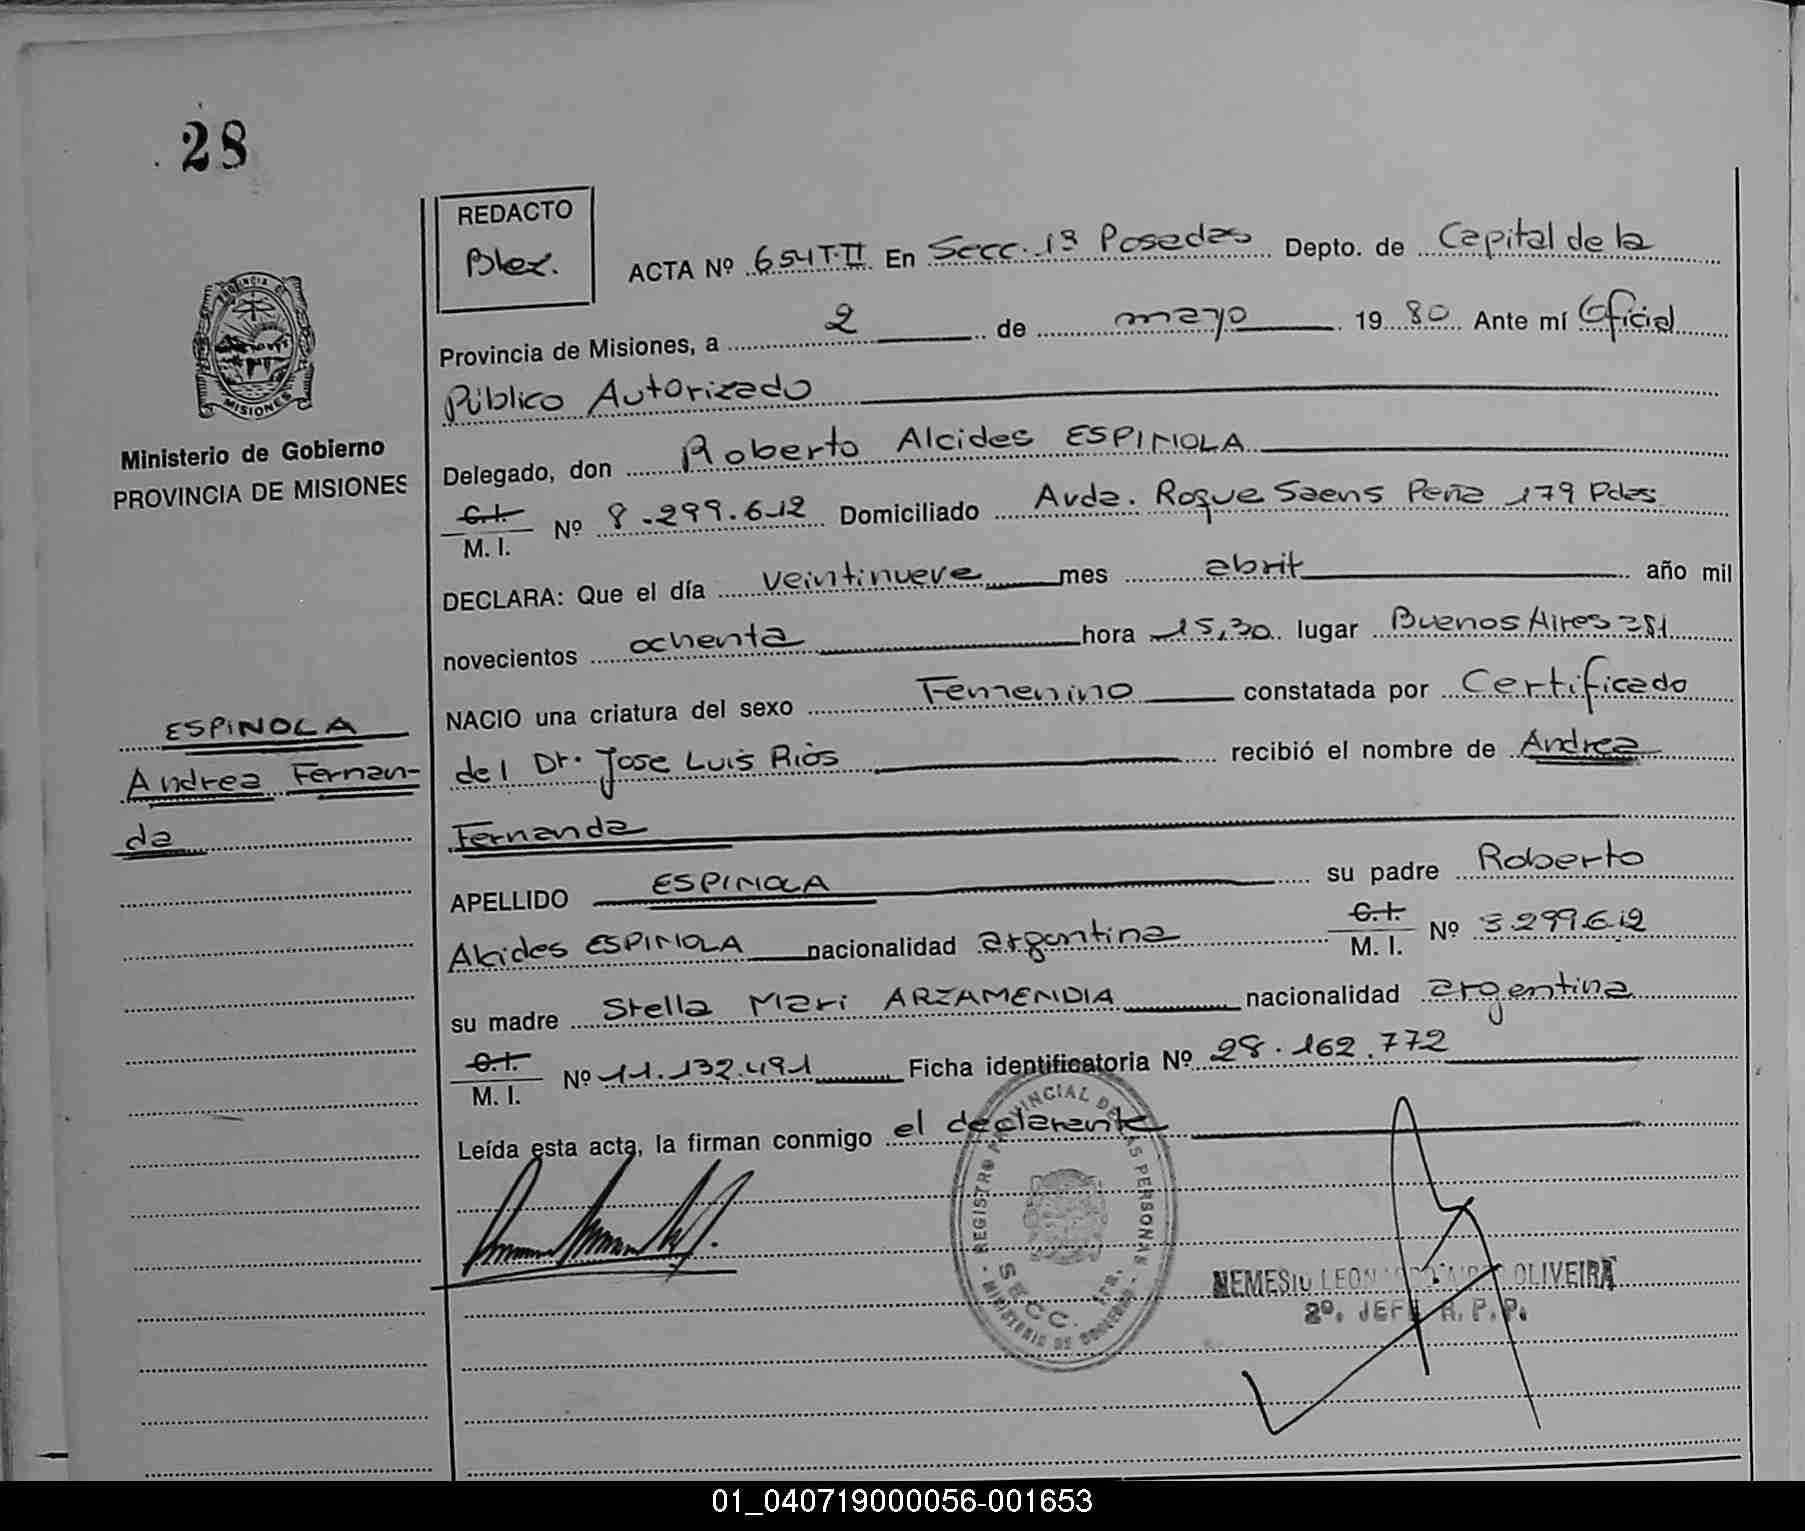 28
REDACTO
Blez.
ACTA Nº 654 T·II En Secc. 1ª Posadas Depto. de Capital de la
Provincia de Misiones, a 2 de mayo 1980 Ante mí Oficial
Público Autorizado
Delegado, don Roberto Alcides ESPINOLA
C.I.
M. I. Nº 8.299.612 Domiciliado Avda. Roque Saens Peña 179 Pdas
DECLARA: Que el día veintinueve mes abril año mil
novecientos ochenta hora 15,30 lugar Buenos Aires 281
NACIO una criatura del sexo Femenino constatada por Certificado
del Dr. Jose Luis Riós recibió el nombre de Andrea
Fernanda
APELLIDO ESPINOLA su padre Roberto
Alcides ESPINOLA nacionalidad argentina C.I.
M. I. Nº 8.299.612
su madre Stella Mari ARZAMENDIA nacionalidad argentina
C.I.
M. I. Nº 11.132.491 Ficha identificatoria Nº 28.162.772
Leída esta acta, la firman conmigo el declarante
PROVINCIA DE
MISIONES
Ministerio de Gobierno
PROVINCIA DE MISIONES
ESPINOLA
Andrea Fernan-
da
REGISTRO PROVINCIAL DE LAS PERSONAS
SECC. 1ra.
MINISTERIO DE GOBIERNO
NEMESIO OLIVEIRA
2º. JEFE R. P. P.
01_040719000056-001653